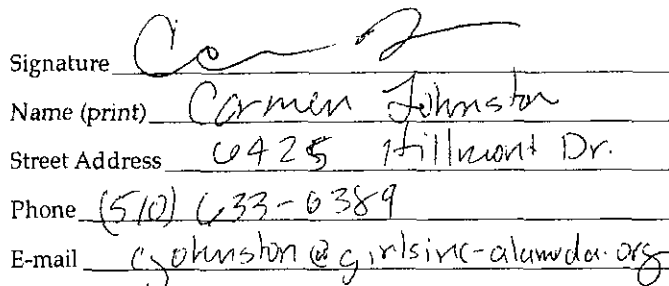 Signature
Name (print) Carmen Johnston
Street Address 6425 Hillmont Dr.
Phone (510) 633-0389
E-mail cjohnston@girlsinc-alameda.org